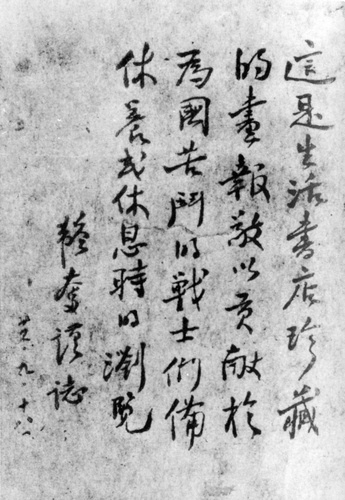 這是生活書店珍藏
的畫報敬以貢献於
為國苦鬥的戰士們備
休養或休息時的瀏覽
韜奮謹誌
廿八、九、十八